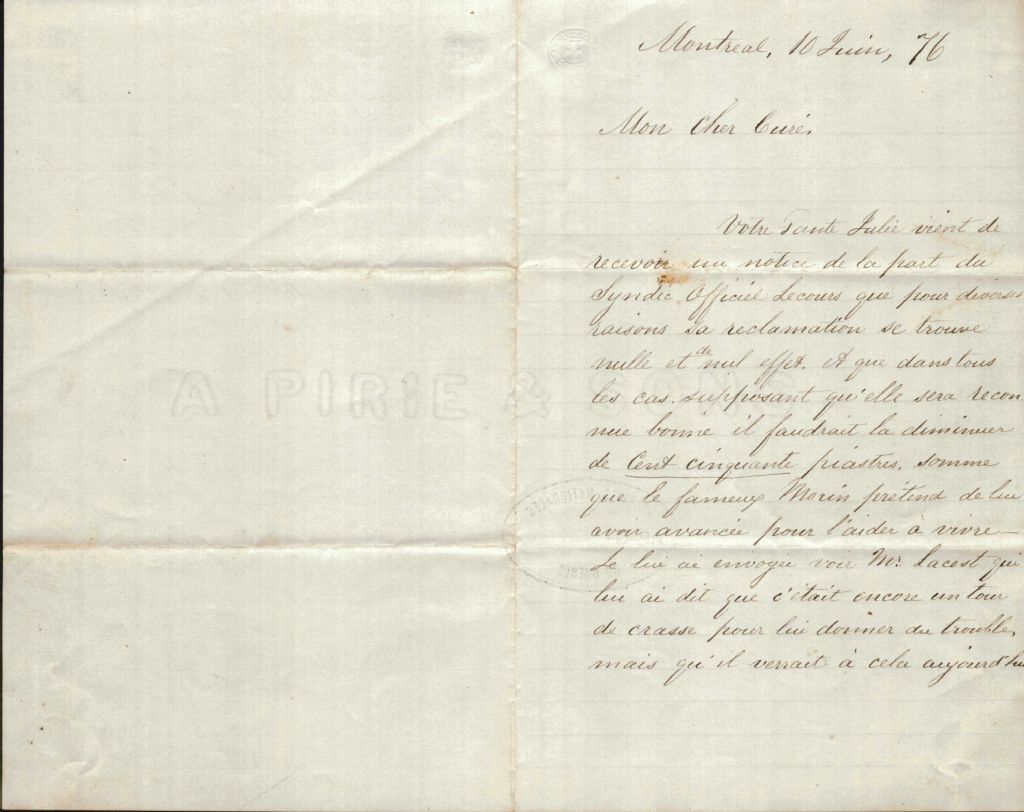 Montreal, 10 Juin, 76
Mon Cher Curé,
Votre Tante Julie vient de
recevoir un notice de la part du
Syndic Officiel Lecours que pour diverses
raisons sa reclamation se trouve
nulle et de nul effet. et que dans tous
les cas. supposant qu'elle sera recon
nue bonne il faudrait la diminuer
de Cent cinquante piastres, somme
que le fameux Morin prétend de lui
avoir avancée pour l'aider à vivre —
Je lui ai envoyée voir Mr. Lacost qui
lui ai dit que c'était encore un tour
de crasse pour lui donner du trouble,
mais qu'il verrait à cela aujourd'hui
A PIRIE & SONS